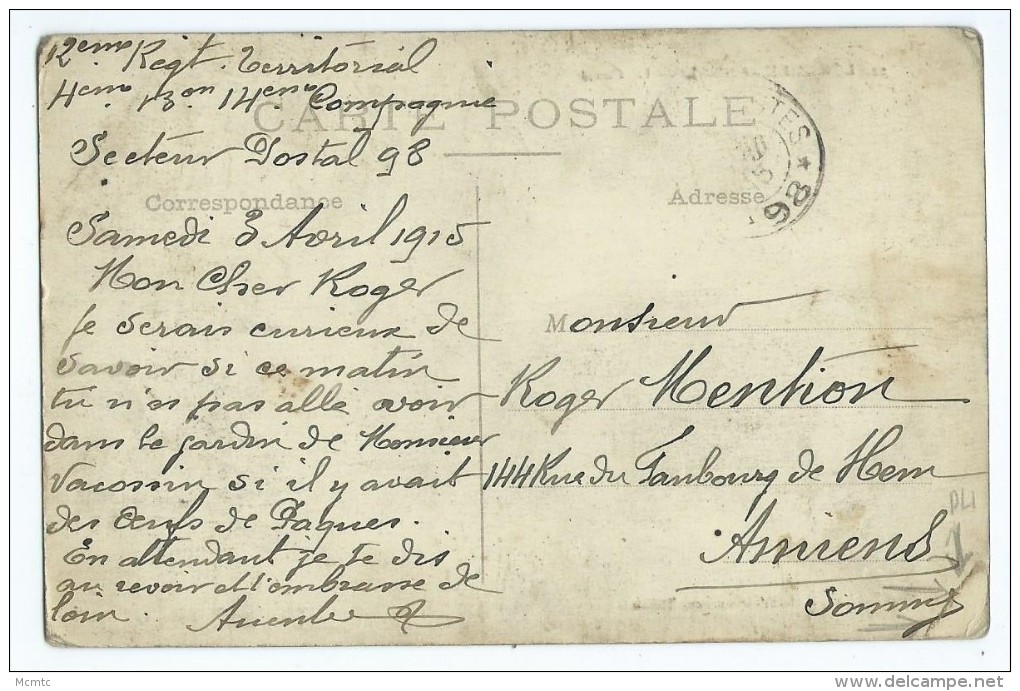 12eme Regt. Territorial
4eme Bon 14eme Compagnie
CARTE POSTALE
Secteur Postal 98
Correspondance
Samedi 3 Avril 1915
Mon Cher Roger
Je serais curieux de
savoir si ce matin
tu n'es pas allé avoir
dans le jardin de Monsieur
Vacossin si il y avait
des œufs de Paques.
En attendant je te dis
au revoir et t'embrasse de
loin.
TES * 98
Adresse
Monsieur
Roger Mention
144 Rue du Faubourg de Hem
Amiens
Somme
PLI
Mcmtc